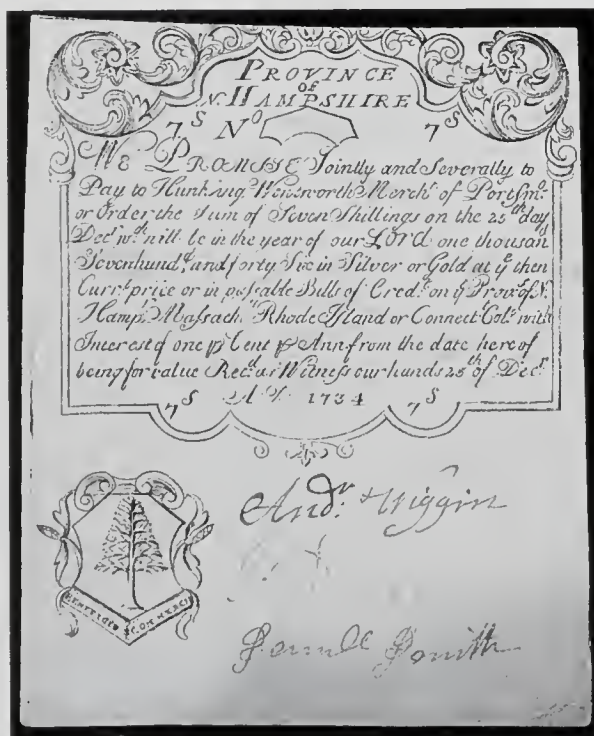 PROVINCE
OF
N. HAMPSHIRE
7S No 7S
WE PROMISE Jointly and Severally to
Pay to Hunking Wentworth Mercht of Portsmo
or Order the Sum of Seven Shillings on the 25th day
Decr wch will be in the year of our LORD one thousand
Sevenhundd and forty Six in Silver or Gold at ye then
Currt price or in passable Bills of Credt on ye Provce of N.
Hampr Massachts Rhode Island or Connectt Cols with
Interest of one p Cent p Ann from the date here of
being for value Recd as Witness our hands 25th of Decr
7S A D 1734 7S
Andr Wiggin
BENEFICIO COMMERCII
Smith